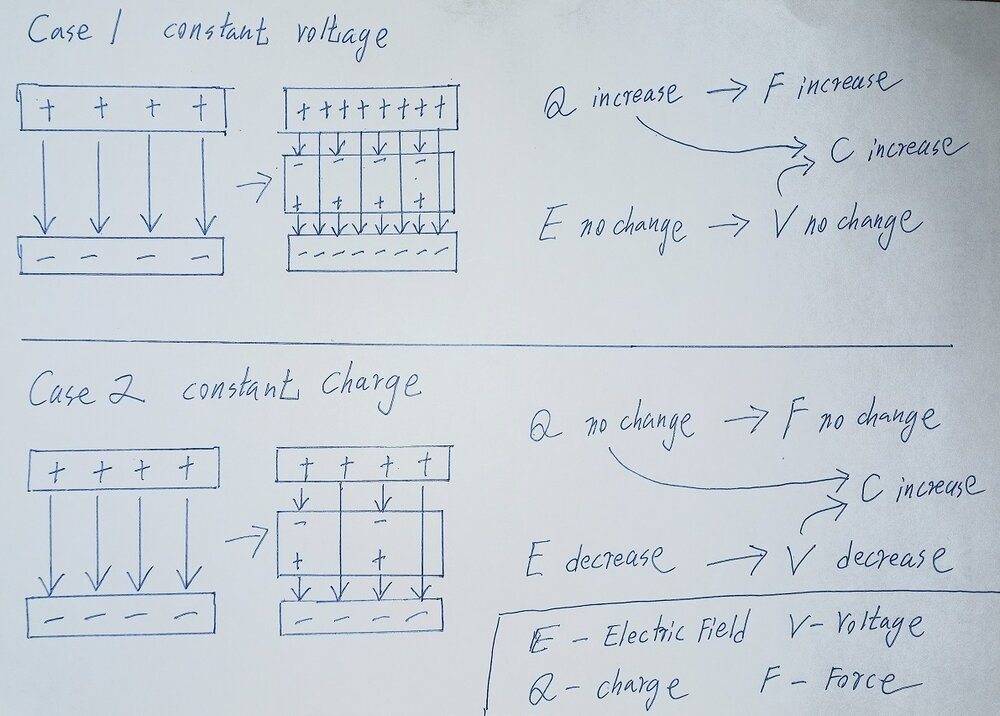 Case 1 constant voltage
+ + + +
- - - -
→
+ + + + + + + +
- - - -
+ + + +
- - - - - - - -
Q increase → F increase
C increase
E no change → V no change
Case 2 constant Charge
+ + + +
- - - -
→
+ + + +
- -
+ +
- - - -
Q no change → F no change
C increase
E decrease → V decrease
E - Electric Field V - Voltage
Q - charge F - Force